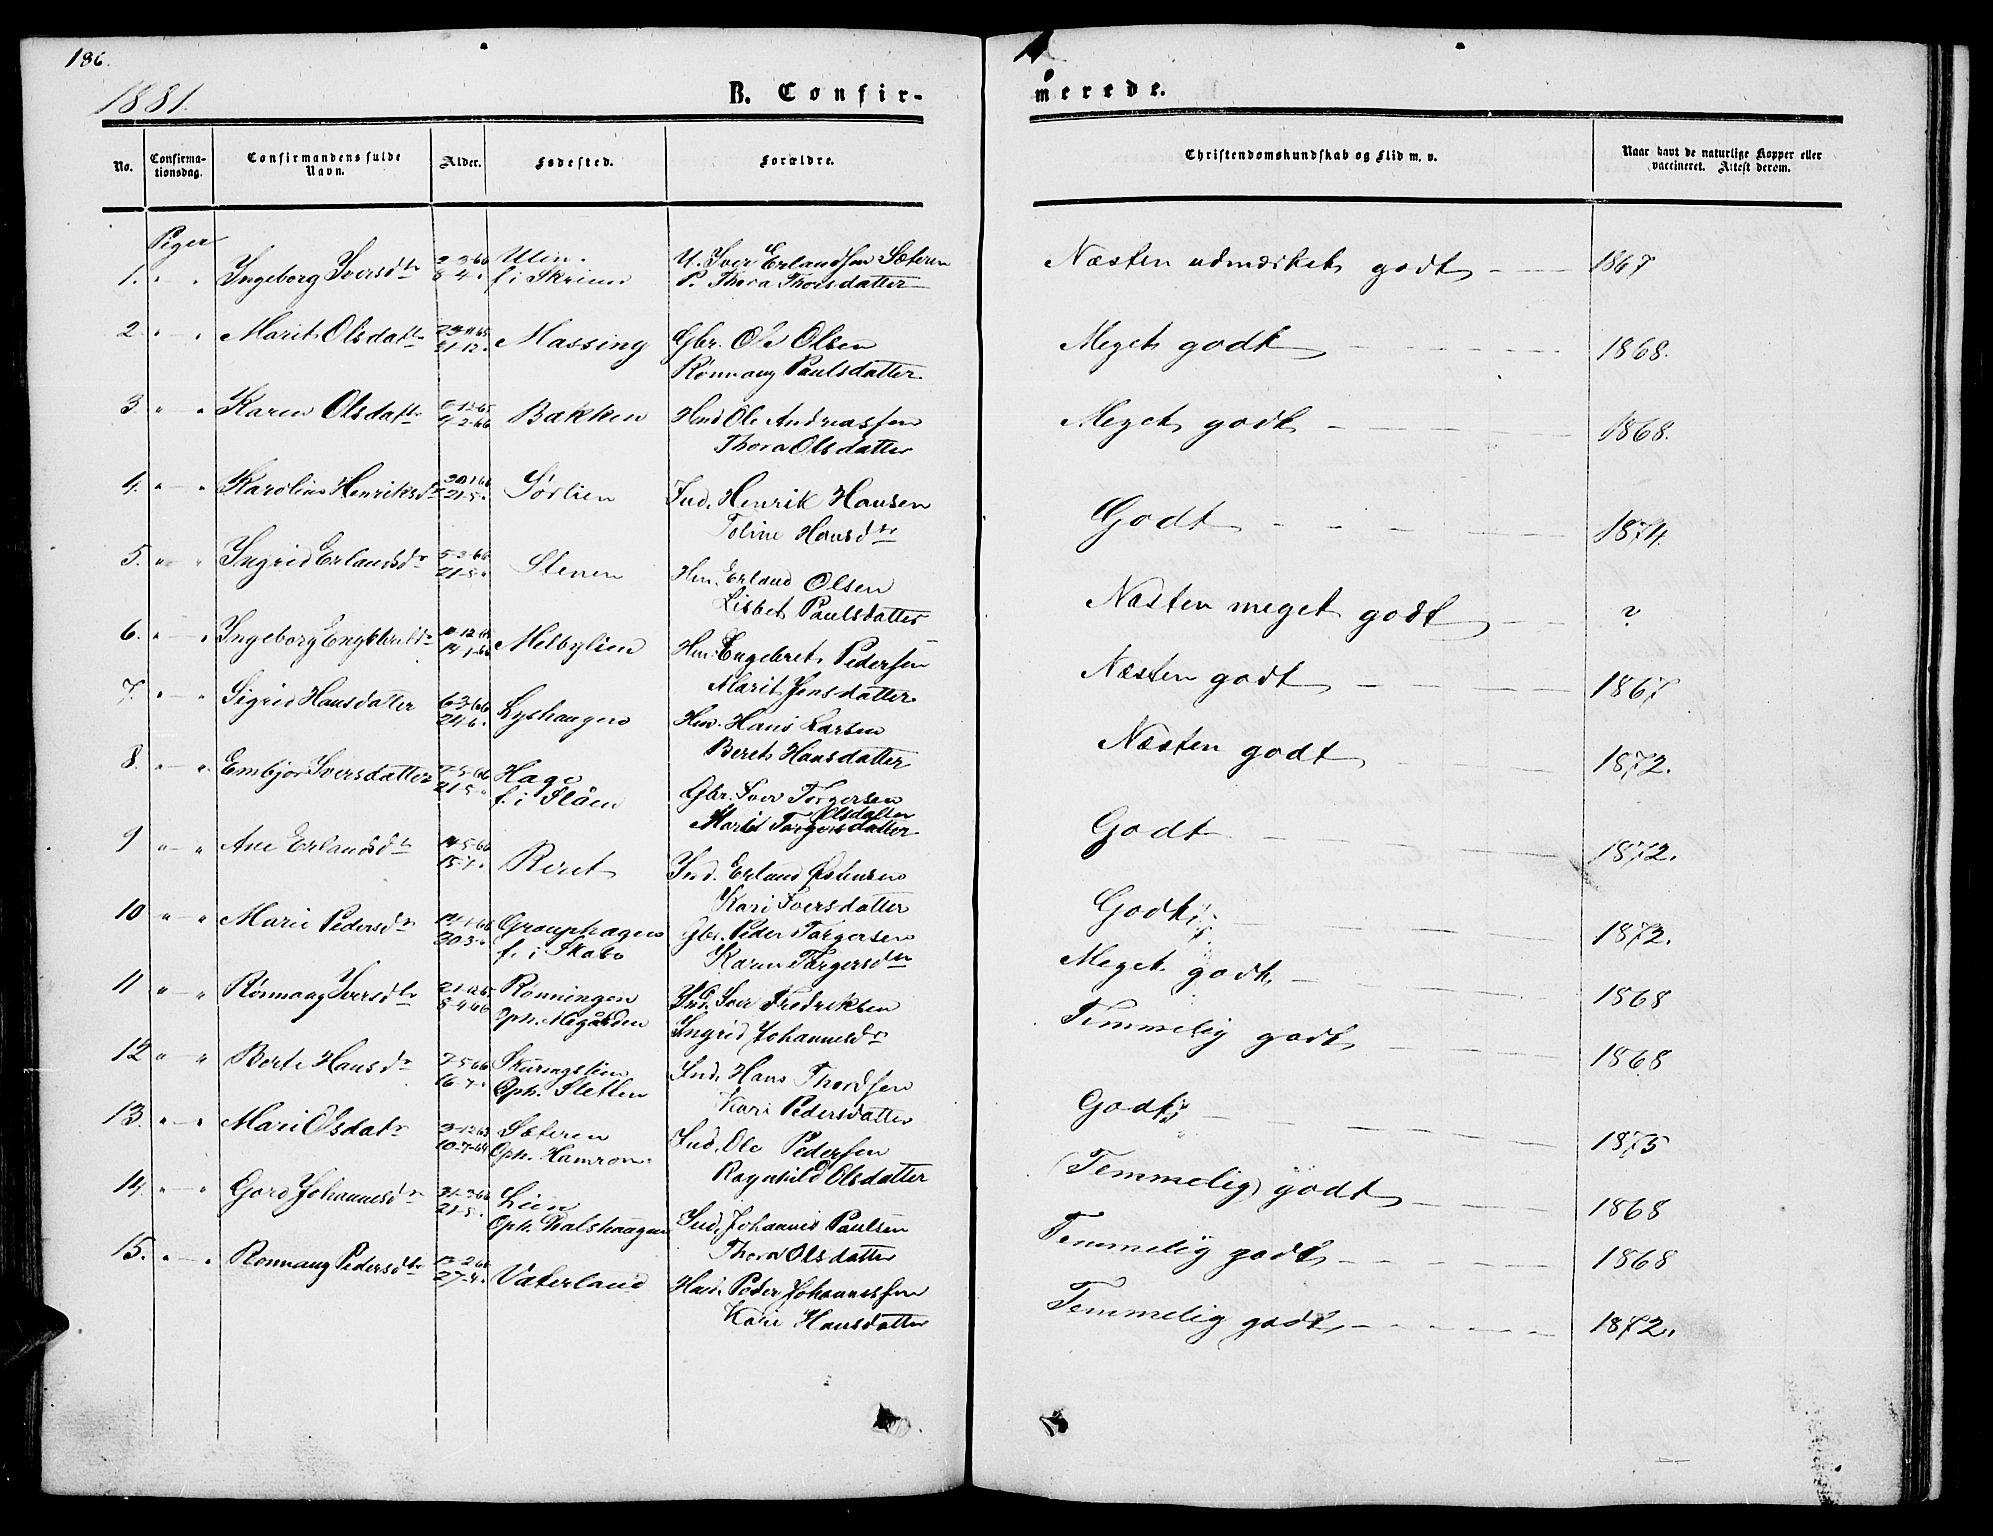 186.
1881.
B. Confir-
merede.
No.
Confirma-
tionsdag.
Confirmandens fulde
Navn.
Alder.
Fødested.
Forældre.
Christendomskundskab og Flid m. v.
Naar havt de naturlige Kopper eller
vaccineret. Attest derom.
Piger
1. " " Ingeborg Iversdtr 8-4 " Ulin. f. i Skrium U. Iver Erlandsen Sæteren
P. Thora Thorsdatter
Næsten udmærket godt 1867
2. " " Marit Olsdattr Massing Gbr. Ole Olsen
Rønnaug Paulsdatter
Meget godt 1868.
3. " " Karen Olsdattr Bakken Hmd Ole Andreassen
Thora Olsdatter
Meget godt 1868.
4. " " Karoline Henriksdtr 21-5 " Sørlien Ind. Henrik Hansen
Toline Hansdtr
Godt 1874.
5. " " Ingrid Erlandsdr 5-3-66 21-5 " Stenen Hm. Erland Olsen
Lisbet Paulsdatter
Næsten meget godt ?
6. " " Ingeborg 14-1-66 Melbylien Hm. Engebret Pedersen
Marit Jensdatter
Næsten godt 1867
7. " " Sigrid Hansdatter 6-3-66 24-6 " Lyshaugen Hm. Hans Larsen
Beret Hansdatter
Næsten godt 1872.
8. " " Embjør Iversdatter 7-5-66 21-5 " Hage f. i Flåen Gbr. Iver Torgersen
Olsdatter
Marit Torgersdatter
Godt 1872.
9 " " Ane Erlandsdtr 14-5-66 15-7 " Revet Ind. Erland
Kari Iversdatter
Godt 1872.
10 " " Marie Pedersdtr 30-3 " f. i Skabo Gbr. Peder Torgersen
Karen Torgersdtr
Meget godt 1868
11 " " Rønnaug Iversdtr 8-4-66 Rønningen Oph. Megården Ind. Iver Fredriksen
Ingrid Johannesdr
Temmelig godt 1868
12 " " Berte Hansdr 7-5-66 16-7 " Skuringslien Oph. Sletten Ind. Hans Thordsen
Kari Pedersdatter
Godt 1875
13. " " Mari Olsdatr 3-12-63 10-7-64 Sæteren Oph. Hamron Ind. Ole Pedersen
Ragnhild Olsdatter
Temmelig godt 1868
14. " " Goro Johannesdtr 31-3-66 21-5 " Lien Oph. Ind. Johannes Paulsen
Thora Olsdatter
Temmelig godt 1868
15. " " Rønnaug Pedersdtr 27-4 " Vaterland Hmd. Peder Johannessen
Kari Hansdatter
Temmelig godt 1872.